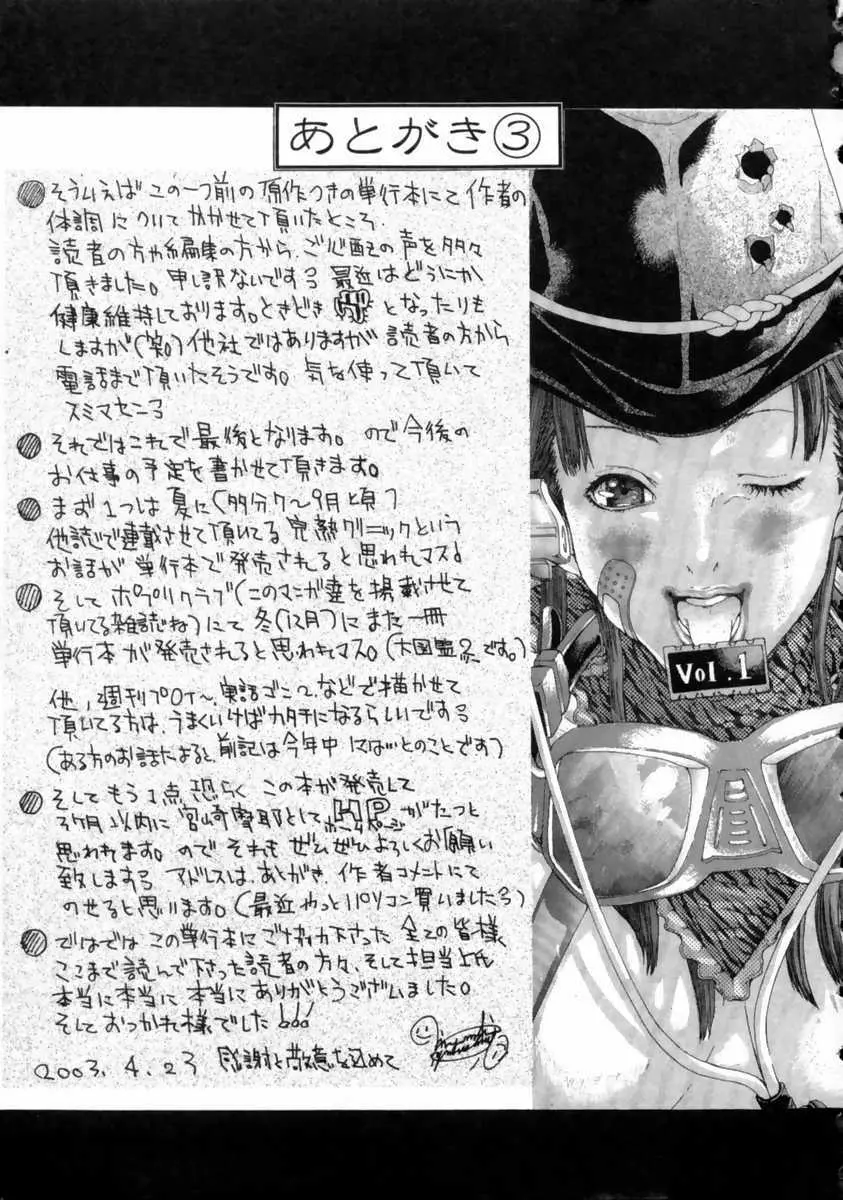 あとがき③
そういえば この一つ前の原作つきの単行本にて 作者の
体調 について かかせて頂いたところ、
読者の方や編集の方から、ご心配の声を多々
頂きました。申し訳ないです 最近はどうにか
健康維持しております。ときどき となったりも
しますが(笑) 他社ではありますが 読者の方から
電話まで頂いたそうです。気を使って頂いて
スミマセン
それではこれで最後となります。ので今後の
お仕事の予定を書かせて頂きます。
まず1つは夏に(多分7〜9月頃)
他誌で連載させて頂いてる 完熟クリニックという
お話が 単行本で発売されると思われマス
そして ポプリクラブ(このマンガ達を掲載させて
頂いてる雑誌ね)にて 冬(12月)にまた一冊
単行本が発売されると思われマス。(です。)
他、週刊プロイ〜、実話 などで描かせて
頂いてる方は、うまくいけばカタチになるらしいです
(ある方のお話によると、前記は今年中にはないとのことです)
そしてもう1点 恐らく この本が発売して
3ヶ月以内に 宮崎摩耶として HP ホームページ がたつと
思われます。ので それも ぜひぜひよろしくお願い
致します アドレスは、あとがき、作者コメントにて
のせると思います。(最近やっとパソコン買いました)
ではでは この単行本にご協力下さった 全ての皆様
ここまで読んで下さった読者の方々、そして担当氏
本当に本当に 本当にありがとうございました。
そしておつかれ様でした!!!
2003.4.23 感謝と敬意を込めて
Vol.1